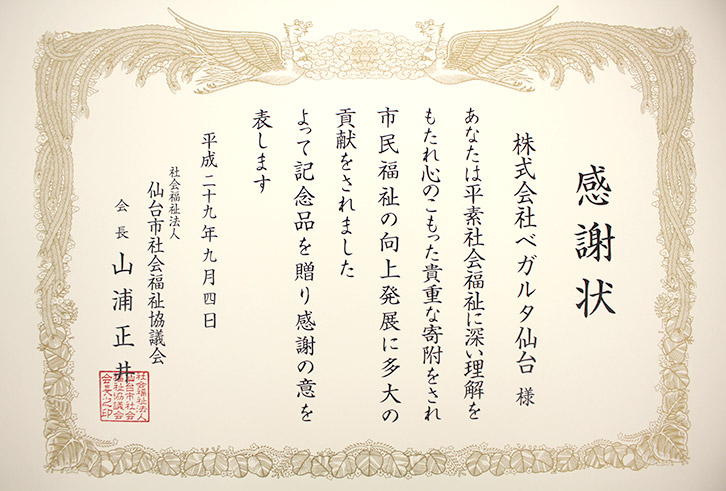 感謝状
株式会社ベガルタ仙台 様
あなたは平素社会福祉に深い理解を
もたれ心のこもった貴重な寄附をされ
市民福祉の向上発展に多大の
貢献をされました
よって記念品を贈り感謝の意を
表します
平成二十九年九月四日
社会福祉法人
仙台市社会福祉協議会
会長 山浦正井
社会福祉法人
仙台市社会
福祉協議会
会長之印